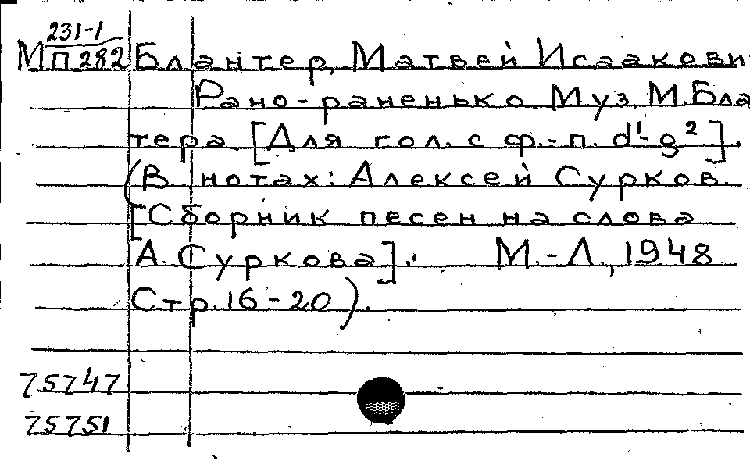 231-1
МП282 Блантер, Матвей Исаакови
Рано-раненько. Муз. М. Бла
тера. [Для гол. с ф.-п. d¹-g²].
(В нотах: Алексей Сурков.
[Сборник песен на слова
А. Суркова]. М.-Л., 1948
Стр. 16-20).
75747
75751